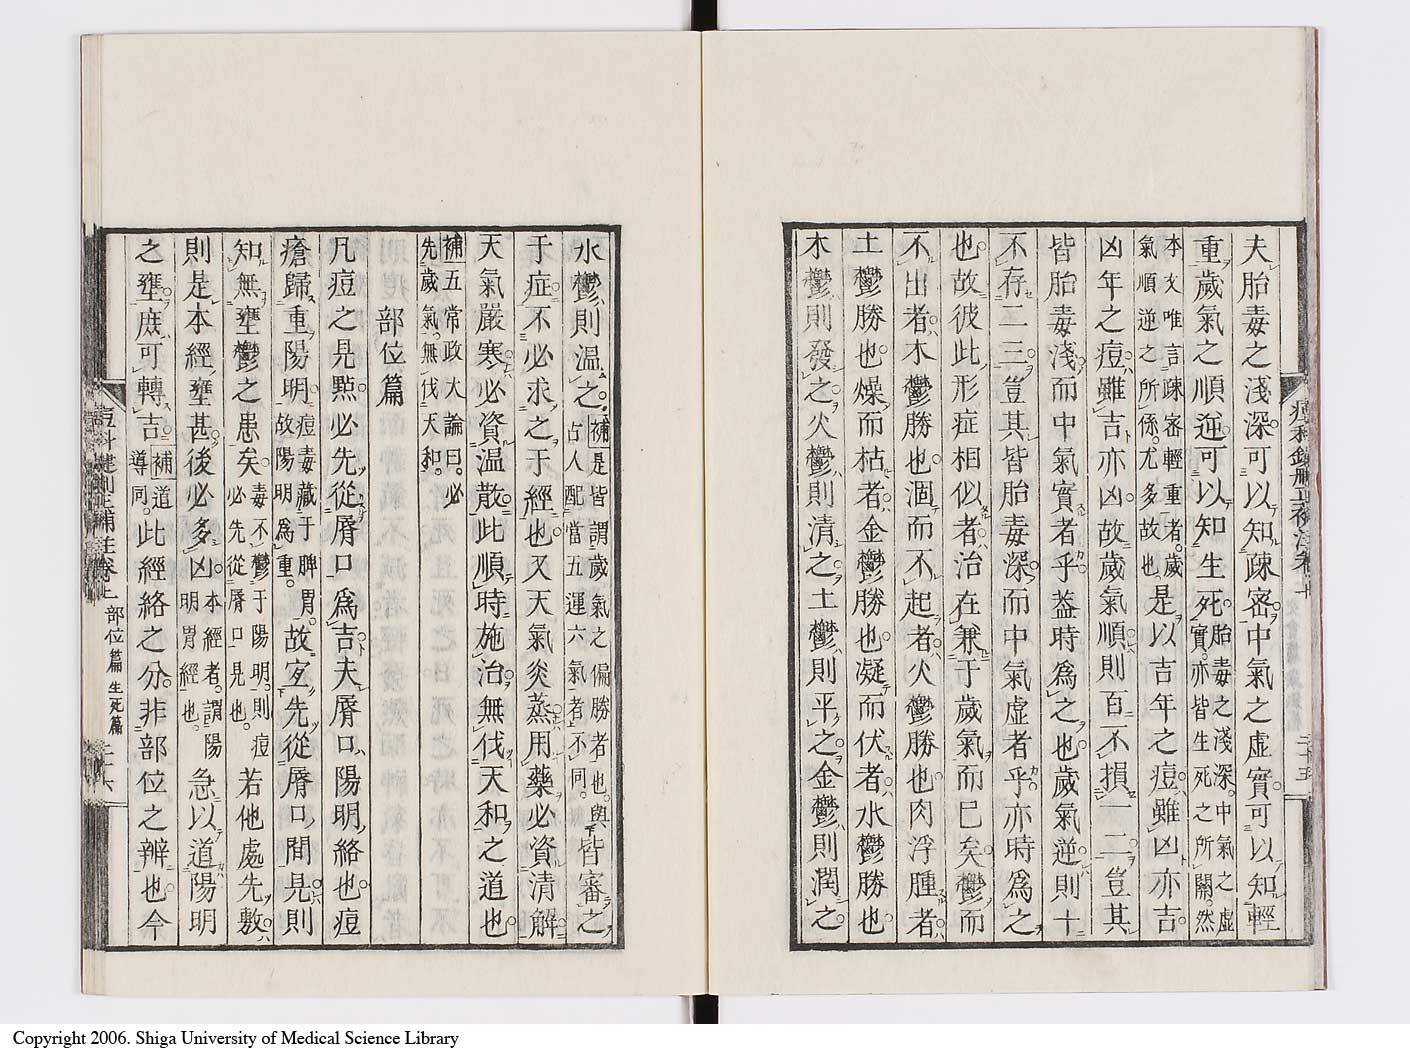 夫胎毒之淺深可以知疎密中氣之虛實可以知輕
重歲氣之順逆可以知生死胎毒之淺深中氣之虛實亦皆生死之所關然
本文唯言疎密輕重者歲氣順逆之所係尤多故也是以吉年之痘雖凶亦吉
凶年之痘雖吉亦凶故歲氣順則百不損一二豈其
皆胎毒淺而中氣實者乎蓋時為之也歲氣逆則十
不存二三豈其皆胎毒深而中氣虛者乎亦時為之
也故彼此形症相似者治在兼于歲氣而已矣鬱而
不出者木鬱勝也涸而不起者火鬱勝也肉浮腫者
土鬱勝也燥而枯者金鬱勝也凝而伏者水鬱勝也
木鬱則發之火鬱則清之土鬱則平之金鬱則潤之
水鬱則温之補是皆謂歲氣之偏勝者也與占人配當五運六氣者不同皆審之
于症不必求之于經也又天氣炎蒸用藥必資清解
天氣嚴寒必資温散此順時施治無伐天和之道也
補五常政大論曰必先歲氣無伐天和
部位篇
凡痘之見點必先從脣口為吉夫脣口陽明絡也痘
瘡歸重陽明痘毒藏于脾胃故陽明為重故宜先從脣口間見則
知無壅鬱之患矣毒不鬱于陽明則痘必先從脣口見也若他處先敷
則是本經壅甚後必多凶本經者謂陽明胃經也急以道陽明
之壅庶可轉吉補道導同此經絡之分非部位之辨也今
部位篇 生死篇 二十六
Copyright 2006. Shiga University of Medical Science Library